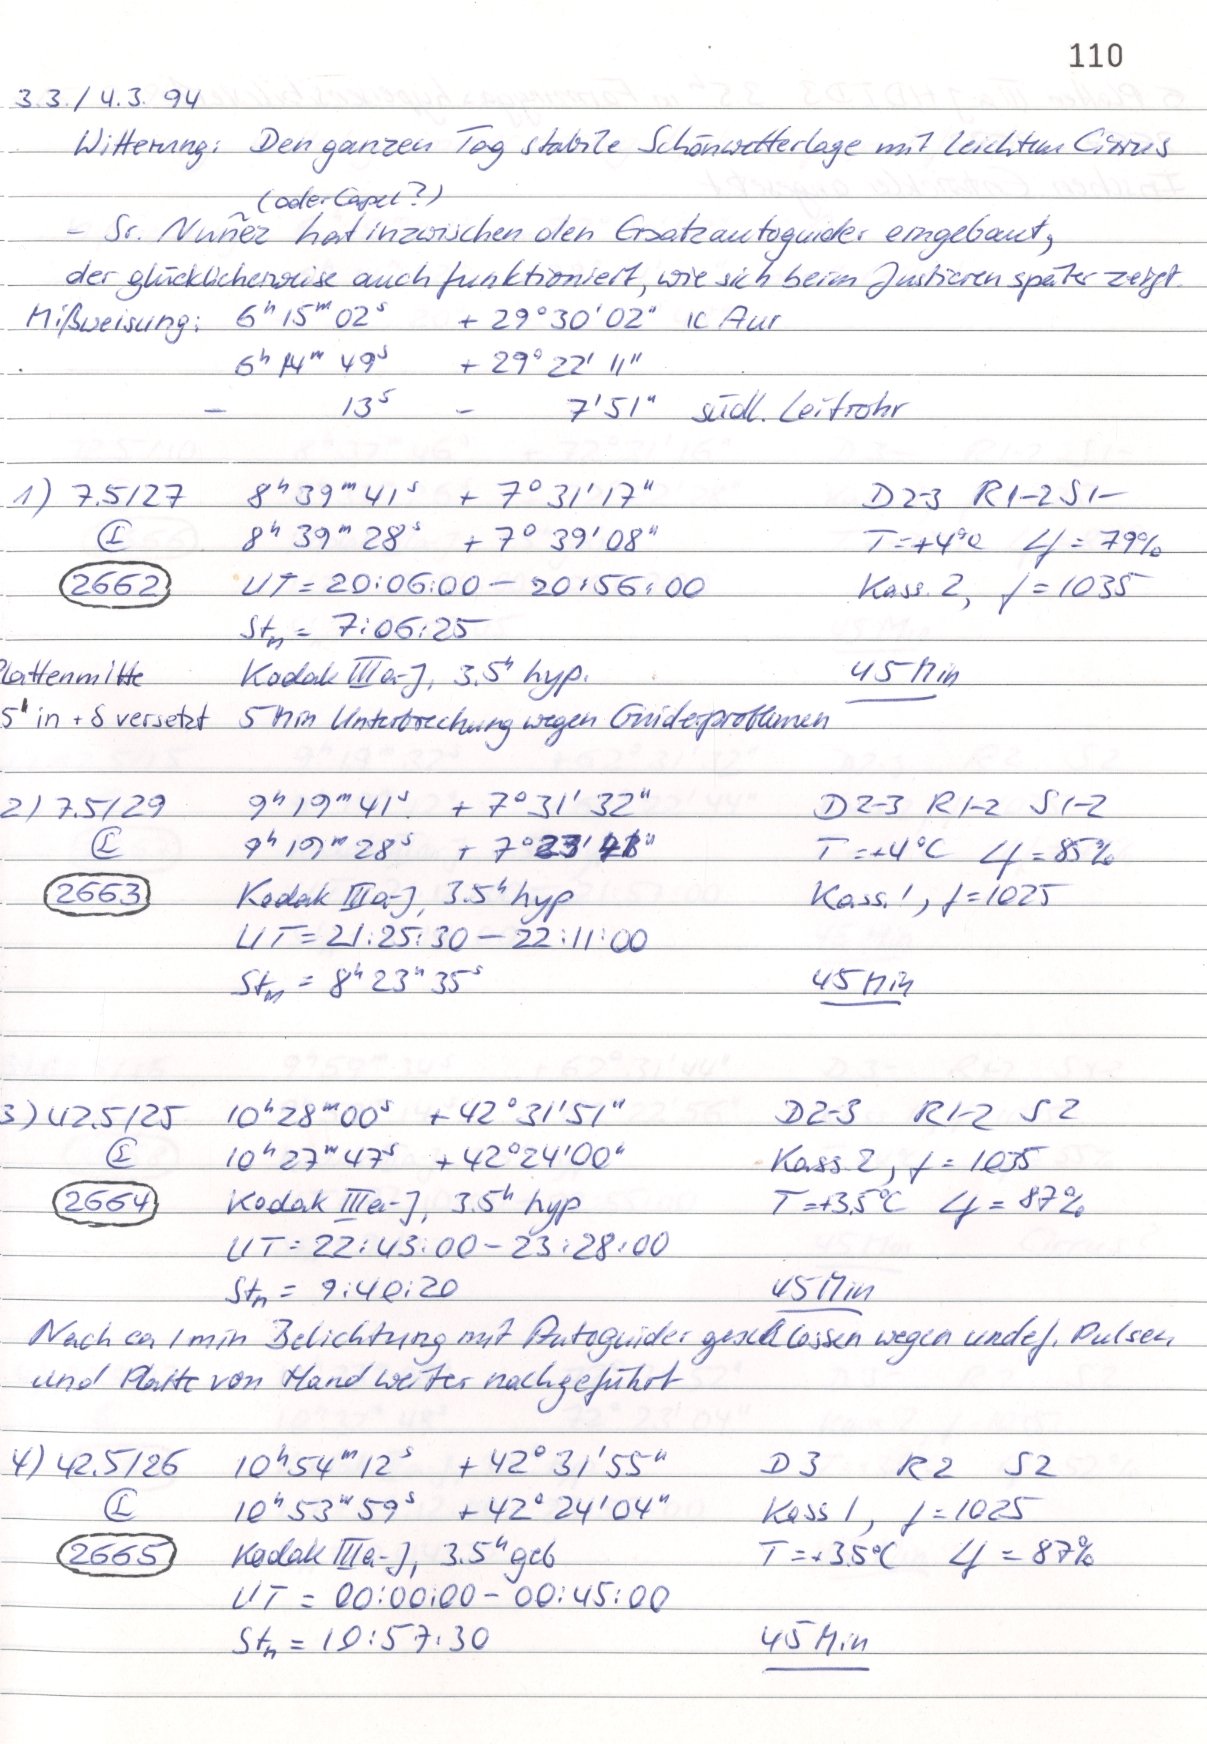 110
3.3./4.3. 94
Witterung: Den ganzen Tag stabile Schönwetterlage mit leichtem Cirrus
(oder Capel?)
- Sr. Nuñez hat inzwischen den Ersatzautoguider eingebaut,
der glücklicherweise auch funktioniert, wie sich beim Justieren später zeigt.
Mißweisung: 6ʰ 15ᵐ 02ˢ + 29° 30' 02" κ Aur
6ʰ 14ᵐ 49ˢ + 29° 22' 11"
- 13ˢ - 7' 51" südl. Leitrohr
1) 7.5/27 8ʰ 39ᵐ 41ˢ + 7° 31' 17" D2-3 R1-2 S1-
8ʰ 39ᵐ 28ˢ + 7° 39' 08" T=+4°C = 79%
2662 UT = 20:06:00 - 20:56:00 Kass. 2, f = 1035
Stₙ = 7:06:25
Plattenmitte Kodak IIIa-J, 3.5ʰ hyp. 45 Min
5' in + δ versetzt 5 Min Unterbrechung wegen Guiderproblemen
2) 7.5/29 9ʰ 19ᵐ 41ˢ + 7° 31' 32" D2-3 R1-2 S1-2
9ʰ 19ᵐ 28ˢ + 7° 23' T=+4°C = 85%
2663 Kodak IIIa-J, 3.5ʰ hyp Kass. 1, f=1025
UT = 21:25:30 - 22:11:00
Stₙ = 8ʰ 23ᵐ 35ˢ 45 Min
3) 42.5/25 10ʰ 28ᵐ 00ˢ + 42° 31' 51" D2-3 R1-2 S2
10ʰ 27ᵐ 47ˢ + 42° 24' 00" Kass. 2, f = 1035
2664 Kodak IIIa-J, 3.5ʰ hyp T=+3.5°C = 87%
UT = 22:43:00 - 23:28:00
Stₙ = 9:40:20 45 Min
Nach ca 1 min Belichtung mit Autoguider geschlossen wegen undef. Pulsen
und Platte von Hand weiter nachgeführt
4) 42.5/26 10ʰ 54ᵐ 12ˢ + 42° 31' 55" D3 R2 S2
10ʰ 53ᵐ 59ˢ + 42° 24' 04" Kass 1, f = 1025
2665 Kodak IIIa-J, 3.5ʰ geb T=+3.5°C = 87%
UT = 00:00:00 - 00:45:00
Stₙ = 10:57:30 45 Min